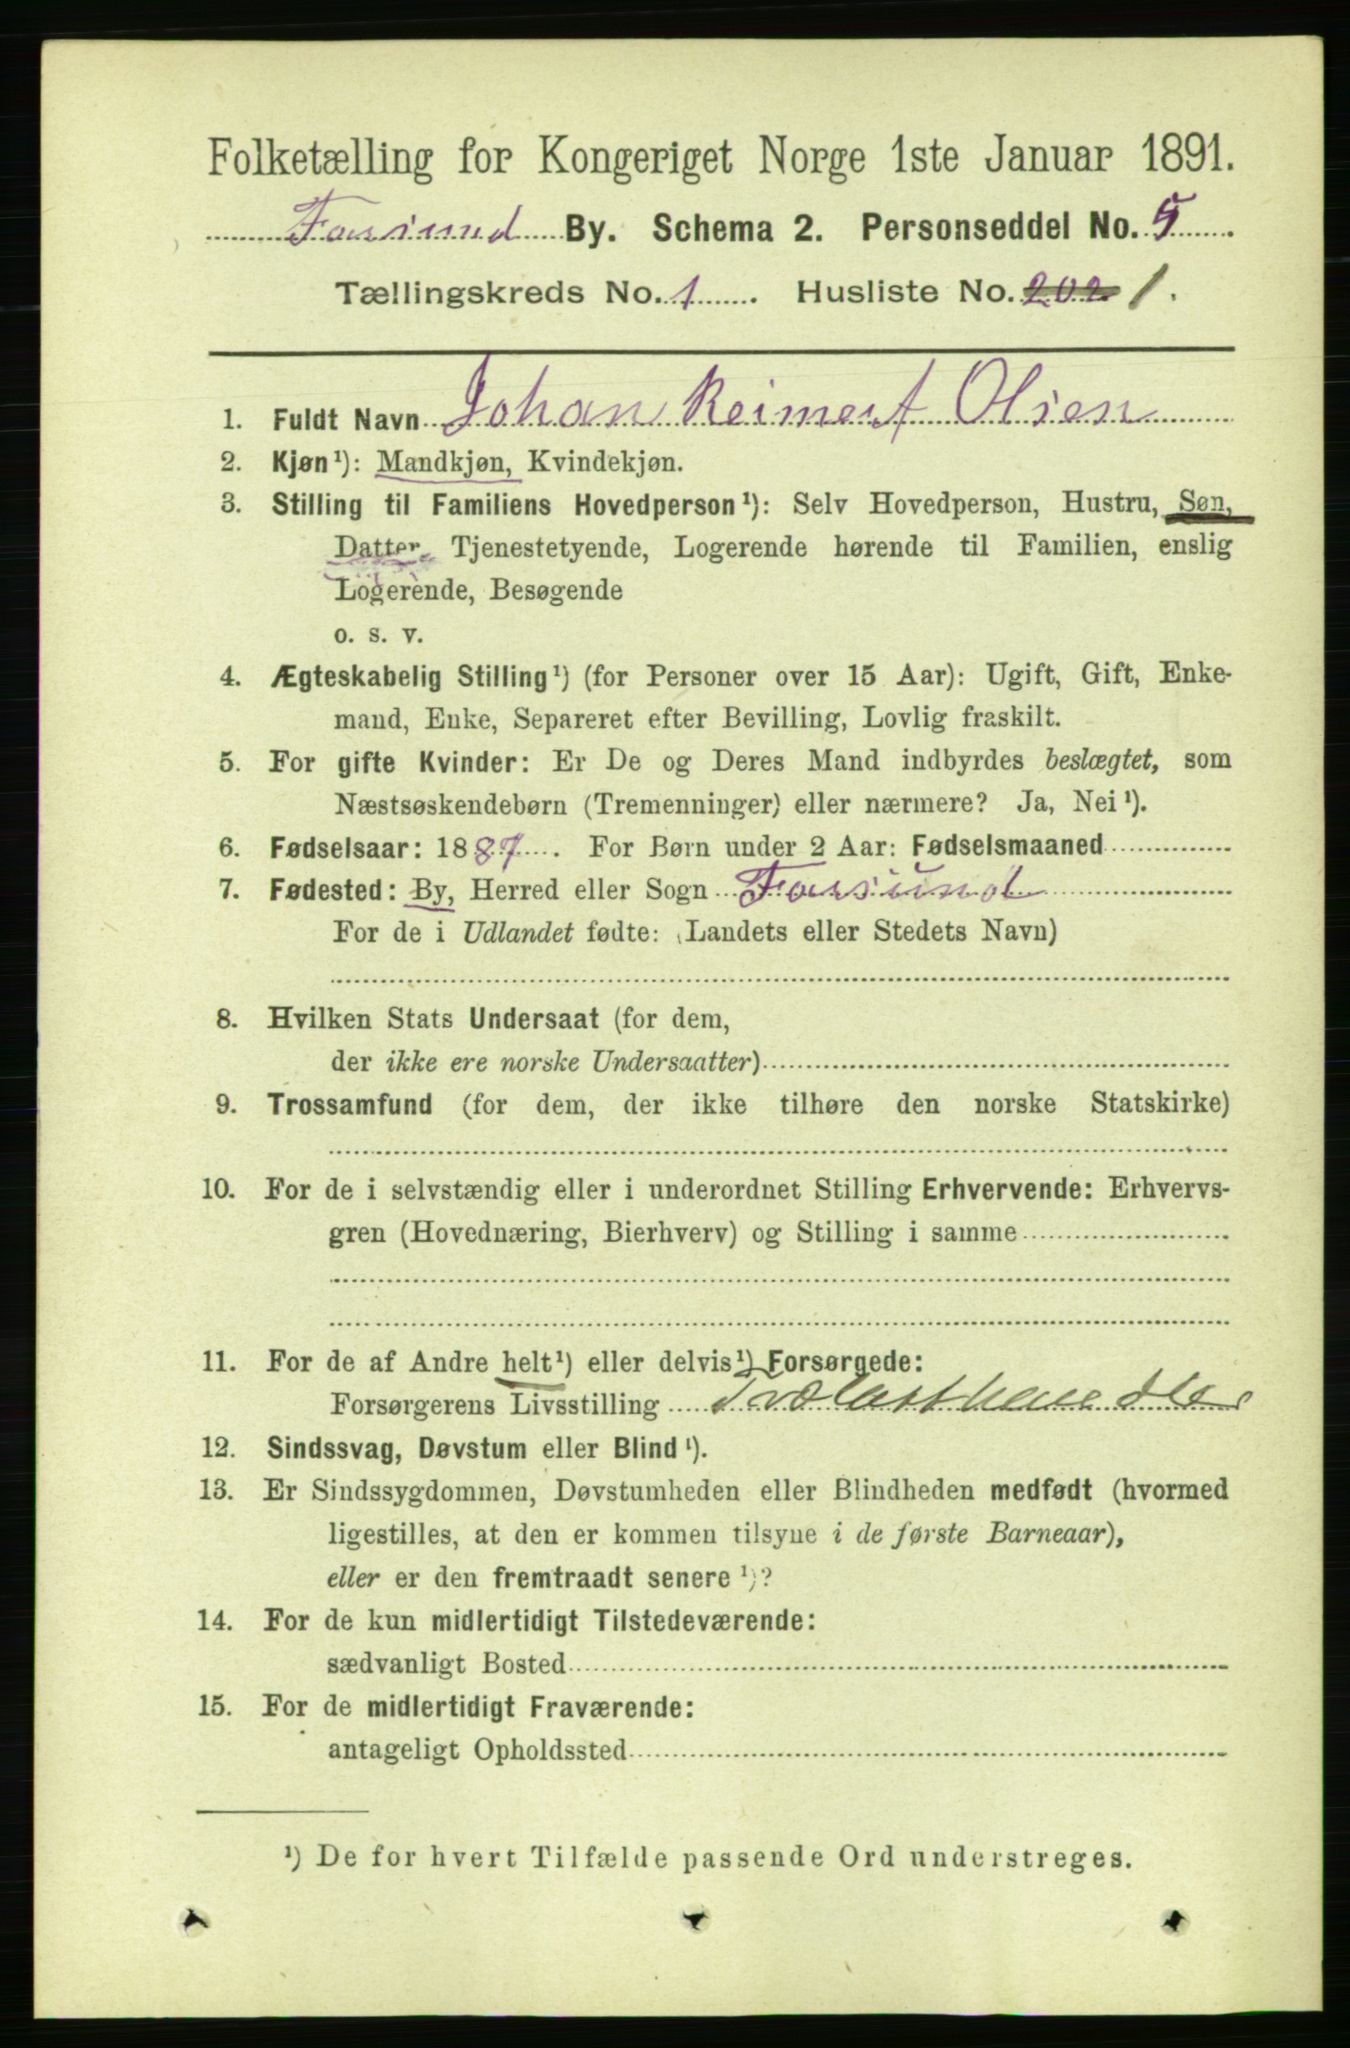 Folketælling for Kongeriget Norge 1ste Januar 1891.
Farsund By. Schema 2. Personseddel No. 5
Tællingskreds No. 1. Husliste No. 202 1.
1. Fuldt Navn Johan Reimert Olsen
2. Kjøn¹): Mandkjøn, Kvindekjøn.
3. Stilling til Familiens Hovedperson¹): Selv Hovedperson, Hustru, Søn,
Datter, Tjenestetyende, Logerende hørende til Familien, enslig
Logerende, Besøgende
o. s. v.
4. Ægteskabelig Stilling¹) (for Personer over 15 Aar): Ugift, Gift, Enke-
mand, Enke, Separeret efter Bevilling, Lovlig fraskilt.
5. For gifte Kvinder: Er De og Deres Mand indbyrdes beslægtet, som
Næstsøskendebørn (Tremenninger) eller nærmere? Ja, Nei¹).
6. Fødselsaar: 1887. For Børn under 2 Aar: Fødselsmaaned
7. Fødested: By, Herred eller Sogn Farsund
For de i Udlandet fødte: (Landets eller Stedets Navn)
8. Hvilken Stats Undersaat (for dem,
der ikke ere norske Undersaatter)
9. Trossamfund (for dem, der ikke tilhøre den norske Statskirke)
10. For de i selvstændig eller i underordnet Stilling Erhvervende: Erhvervs-
gren (Hovednæring, Bierhverv) og Stilling i samme
11. For de af Andre helt¹) eller delvis¹) Forsørgede:
Forsørgerens Livsstilling Trælasthandler
12. Sindssvag, Døvstum eller Blind¹).
13. Er Sindssygdommen, Døvstumheden eller Blindheden medfødt (hvormed
ligestilles, at den er kommen tilsyne i de første Barneaar),
eller er den fremtraadt senere¹)?
14. For de kun midlertidigt Tilstedeværende:
sædvanligt Bosted
15. For de midlertidigt Fraværende:
antageligt Opholdssted
¹) De for hvert Tilfælde passende Ord understreges.